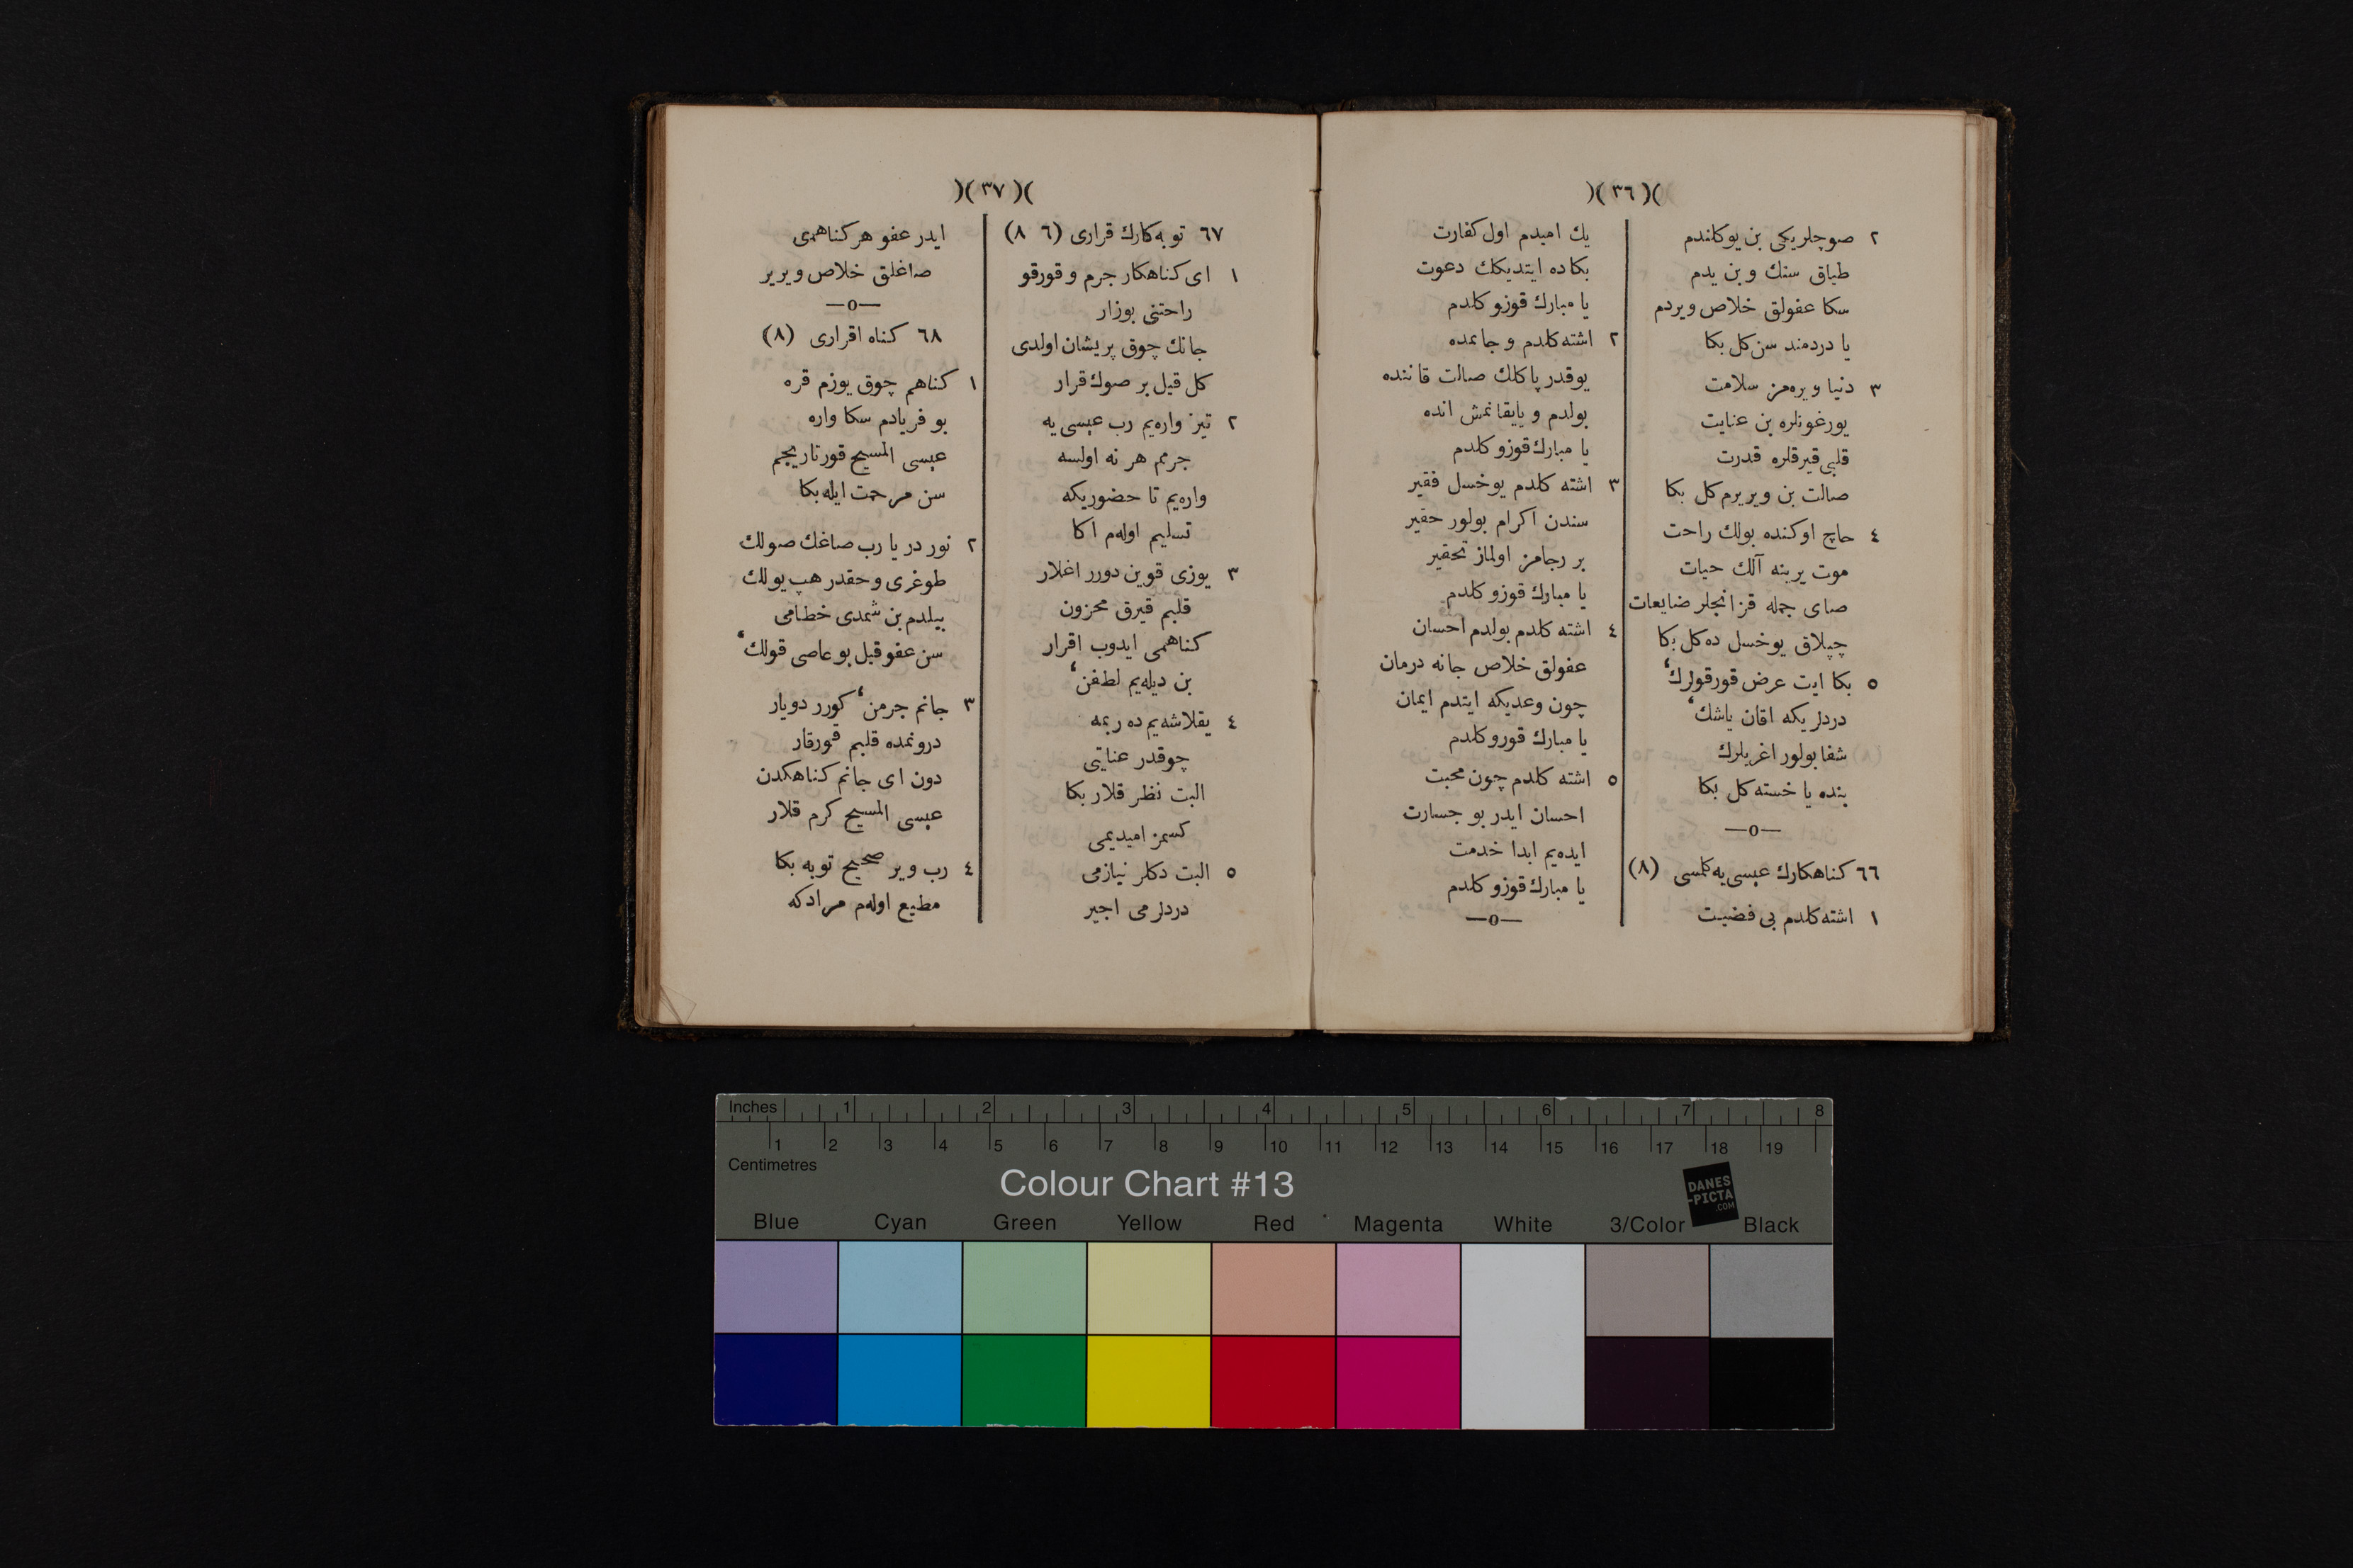 )( ٣٦ )(
٢ صوچلریکی بن یوکلندم
طباق سنك وبن یدم
سکا عفولق خلاص ویردم
یا دردمند سن کل بکا
٣ دنیا ویره‌مز سلامت
یورغونلره بن عنایت
قلبی قیرقلره قدرت
صالت بن ویریرم کل بکا
٤ حاچ اوکنده بولك راحت
موت یرینه آلك حیات
صای جمله قزانجلر ضایعات
چپلاق یوخسل ده کل بکا
٥ بکا ایت عرض قورقولرك‘
دردلریکه اقان یاشك‘
شفا بولور اغریلرك
بنده یا خسته کل بکا
—o—
٦٦ کناهکارك عیسی یه کلمسی (٨)
١ اشته کلدم بی فضیت
یك امیدم اول کفارت
بکا ده ایتدیکك دعوت
یا مبارك قوزو کلدم
٢ اشته کلدم و جانمده
یوقدر پاکلك صالت قاننده
بولدم و یایقانمش انده
یا مبارك قوزو کلدم
٣ اشته کلدم یوخسل فقیر
سندن اکرام بولور حقیر
بر رجامز اولماز تحقیر
یا مبارك قوزو کلدم
٤ اشته کلدم بولدم احسان
عفولق خلاص جانه درمان
چون وعدیکه ایتدم ایمان
یا مبارك قورو کلدم
٥ اشته کلدم چون محبت
احسان ایدر بو جسارت
ایده‌یم ابدا خدمت
یا مبارك قوزو کلدم
—o—
)( ٣٧ )(
٦٧ توبه‌کارك قراری (٦ ٨)
١ ای کناهکار جرم و قورقو
راحتنی بوزار
جانك چوق پریشان اولدی
کل قیل بر صوك قرار
٢ تیز واره‌یم رب عیسی یه
جرمم هر نه اولسه
واره‌یم تا حضوریکه
تسلیم اوله‌م اکا
٣ یوزی قوین دورر اغلار
قلبم قیرق محزون
کناهمی ایدوب اقرار
بن دیله‌یم لطفن‘
٤ یقلاشه‌یم ده ربمه
چوقدر عنایتی
البت نظر قلار بکا
کسمز امیدیمی
٥ البت دکلر نیازمی
دردلرمی اجیر
ایدر عفو هر کناهمی
صاغلق خلاص ویریر
—o—
٦٨ کناه اقراری (٨)
١ کناهم چوق یوزم قره
بو فریادم سکا واره
عیسی المسیح قورتاریجم
سن مرحمت ایله بکا
٢ نور در یا رب صاغك صولك
طوغری وحقدر هپ یولك
بیلدم بن شمدی خطامی
سن عفو قیل بو عاصی قولك‘
٣ جانم جرمن‘ کورر دویار
درونمده قلبم قورقار
دون ای جانم کناهکدن
عیسی المسیح کرم قلار
٤ رب ویر صحیح توبه بکا
مطیع اوله‌م مرادکه
Inches 1 2 3 4 5 6 7 8
1 2 3 4 5 6 7 8 9 10 11 12 13 14 15 16 17 18 19
Centimetres
Colour Chart #13
DANES
-PICTA
.COM
Blue Cyan Green Yellow Red Magenta White 3/Color Black